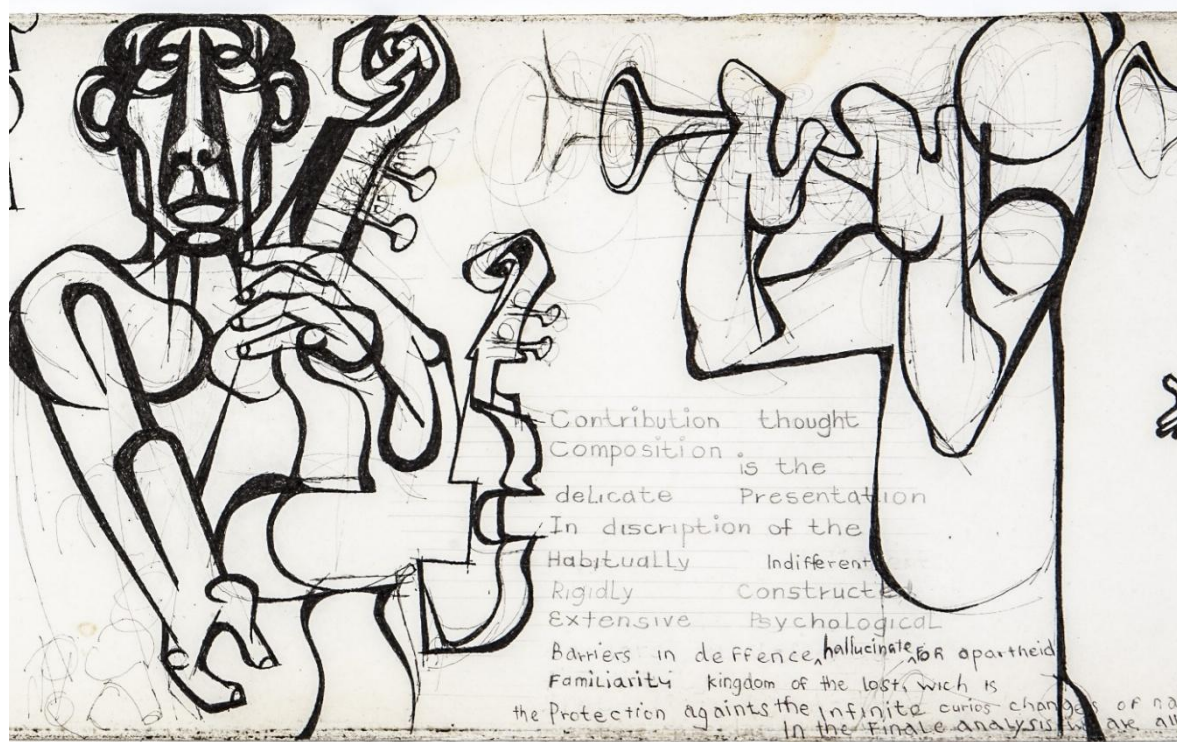 Contribution thought
Composition is the
delicate Presentation
In discription of the
Habitually Indifferent
Rigidly Constructed
Extensive Psychological
Barriers in deffence hallucinate FOR apartheid
Familiarity kingdom of the lost, wich is
the Protection againts the Infinite curios changes of na
In the Finale analysis we are all